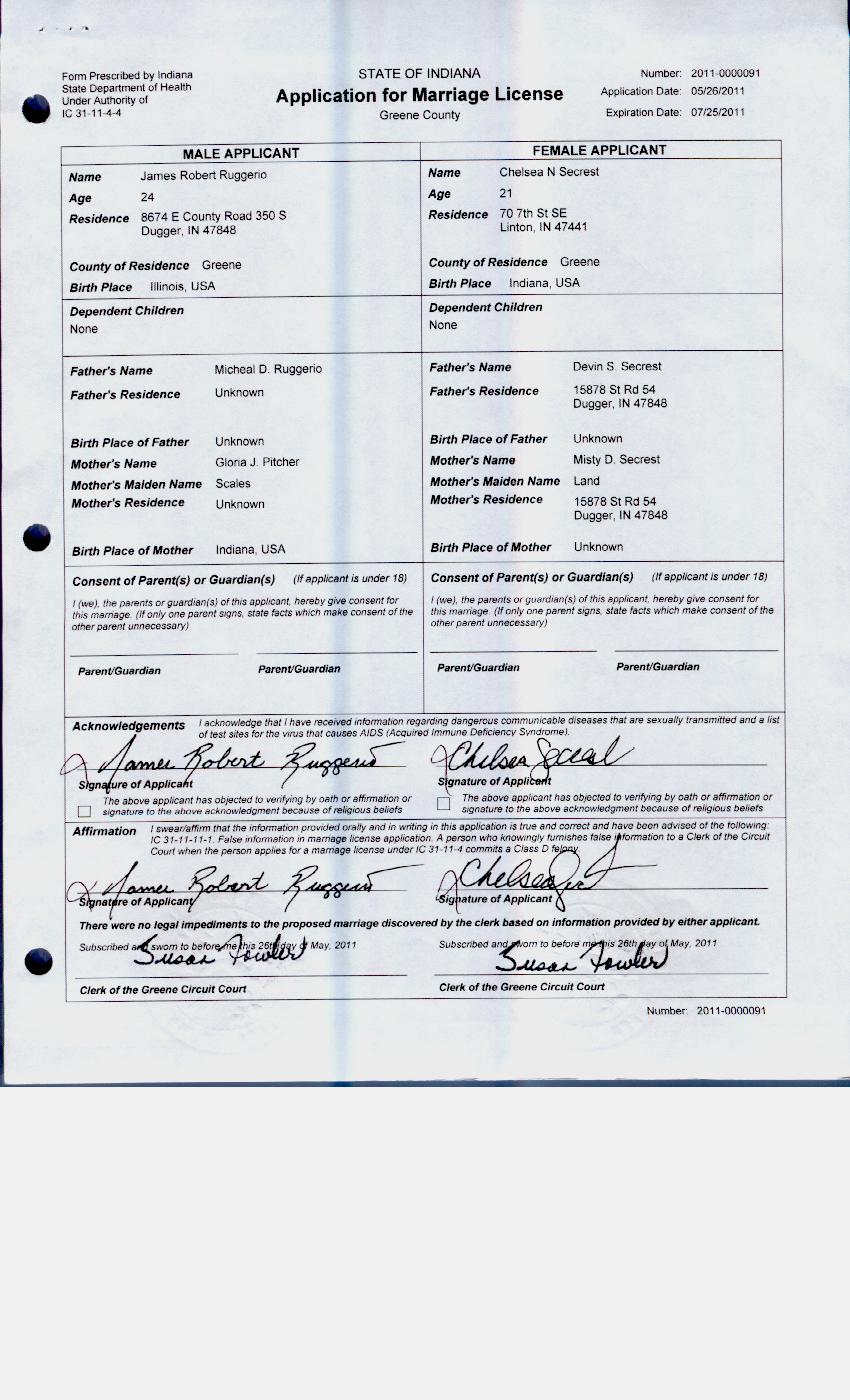 Form Prescribed by Indiana
State Department of Health
Under Authority of
IC 31-11-4-4
STATE OF INDIANA
Application for Marriage License
Greene County
Number: 2011-0000091
Application Date: 05/26/2011
Expiration Date: 07/25/2011
MALE APPLICANT
Name James Robert Ruggerio
Age 24
Residence 8674 E County Road 350 S
Dugger, IN 47848
County of Residence Greene
Birth Place Illinois, USA
Dependent Children
None
Father's Name Micheal D. Ruggerio
Father's Residence Unknown
Birth Place of Father Unknown
Mother's Name Gloria J. Pitcher
Mother's Maiden Name Scales
Mother's Residence Unknown
Birth Place of Mother Indiana, USA
Consent of Parent(s) or Guardian(s) (If applicant is under 18)
I (we), the parents or guardian(s) of this applicant, hereby give consent for
this marriage. (If only one parent signs, state facts which make consent of the
other parent unnecessary)
Parent/Guardian Parent/Guardian
FEMALE APPLICANT
Name Chelsea N Secrest
Age 21
Residence 70 7th St SE
Linton, IN 47441
County of Residence Greene
Birth Place Indiana, USA
Dependent Children
None
Father's Name Devin S. Secrest
Father's Residence 15878 St Rd 54
Dugger, IN 47848
Birth Place of Father Unknown
Mother's Name Misty D. Secrest
Mother's Maiden Name Land
Mother's Residence 15878 St Rd 54
Dugger, IN 47848
Birth Place of Mother Unknown
Consent of Parent(s) or Guardian(s) (If applicant is under 18)
I (we), the parents or guardian(s) of this applicant, hereby give consent for
this marriage. (If only one parent signs, state facts which make consent of the
other parent unnecessary)
Parent/Guardian Parent/Guardian
Acknowledgements I acknowledge that I have received information regarding dangerous communicable diseases that are sexually transmitted and a list
of test sites for the virus that causes AIDS (Acquired Immune Deficiency Syndrome).
James Robert Ruggerio
Signature of Applicant
The above applicant has objected to verifying by oath or affirmation or
signature to the above acknowledgment because of religious beliefs
Chelsea Secrest
Signature of Applicant
The above applicant has objected to verifying by oath or affirmation or
signature to the above acknowledgment because of religious beliefs
Affirmation I swear/affirm that the information provided orally and in writing in this application is true and correct and have been advised of the following:
IC 31-11-11-1. False information in marriage license application. A person who knowingly furnishes false information to a Clerk of the Circuit
Court when the person applies for a marriage license under IC 31-11-4 commits a Class D felony.
James Robert Ruggerio
Signature of Applicant
Chelsea
Signature of Applicant
There were no legal impediments to the proposed marriage discovered by the clerk based on information provided by either applicant.
Subscribed and sworn to before me this 26th day of May, 2011
Susan Fowler
Clerk of the Greene Circuit Court
Subscribed and sworn to before me this 26th day of May, 2011
Susan Fowler
Clerk of the Greene Circuit Court
Number: 2011-0000091